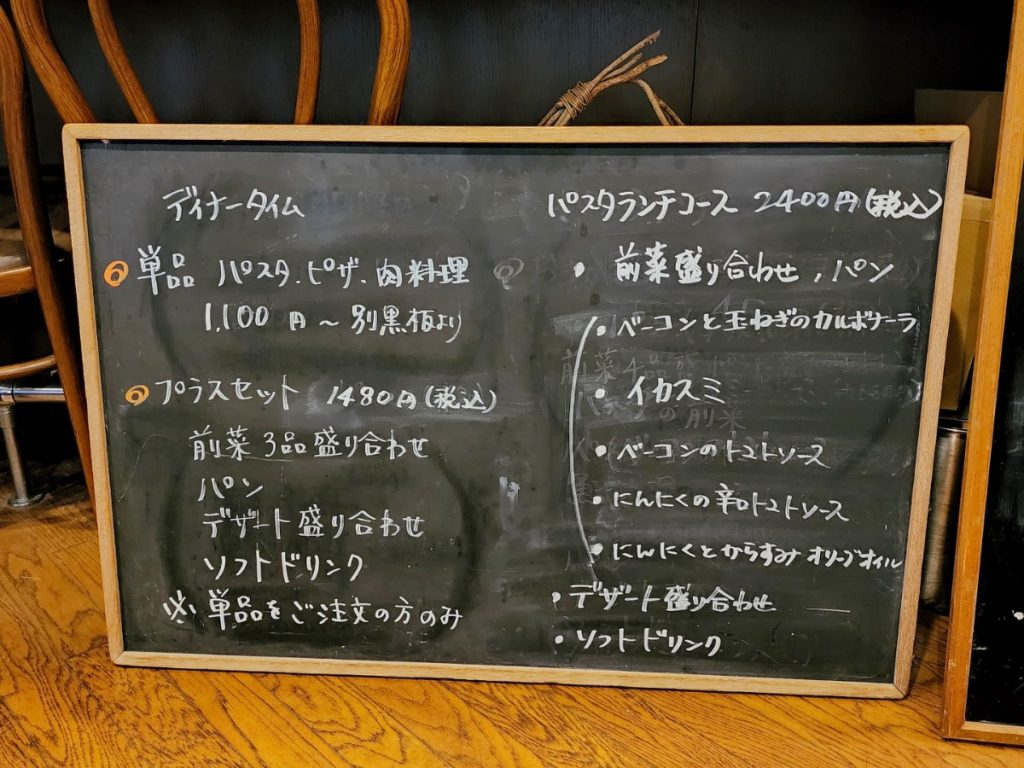 ディナータイム
単品 パスタ.ピザ.肉料理
1,100円〜別黒板より
プラスセット 1480円(税込)
前菜3品盛り合わせ
パン
デザート盛り合わせ
ソフトドリンク
※単品をご注文の方のみ
パスタランチコース 2400円(税込)
・前菜盛り合わせ,パン
・ベーコンと玉ねぎのカルボナーラ
・イカスミ
・ベーコンのトマトソース
・にんにくの辛口トマトソース
・にんにくとからすみオリーブオイル
・デザート盛り合わせ
・ソフトドリンク